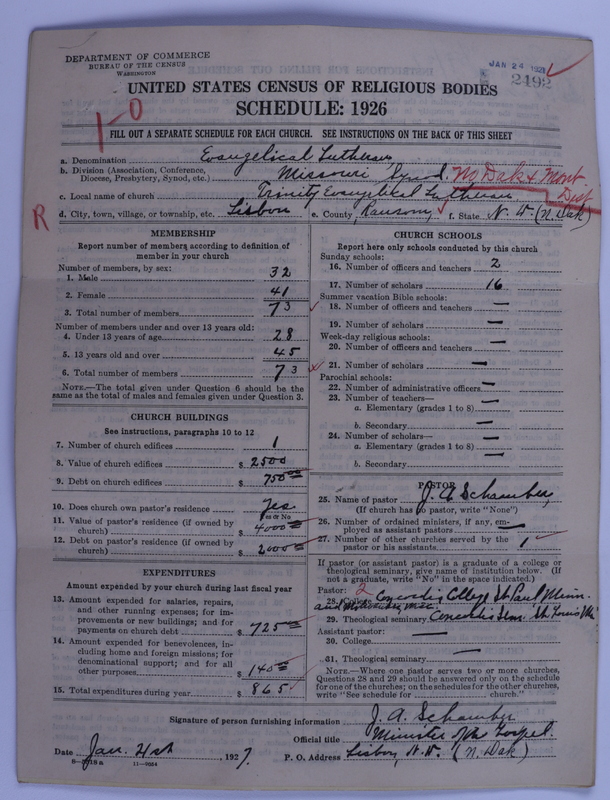 DEPARTMENT OF COMMERCE
BUREAU OF THE CENSUS
WASHINGTON
JAN 24 192
2492
UNITED STATES CENSUS OF RELIGIOUS BODIES
SCHEDULE: 1926
1-0
FILL OUT A SEPARATE SCHEDULE FOR EACH CHURCH. SEE INSTRUCTIONS ON THE BACK OF THIS SHEET
a. Denomination Evangelical Lutheran
b. Division (Association, Conference, Diocese, Presbytery, Synod, etc.) Missouri Synod No Dak & Mont Dist
c. Local name of church Trinity Evangelical Lutheran
R
d. City, town, village, or township, etc. Lisbon e. County, Ransom f. State N. D. (N. Dak)
MEMBERSHIP
Report number of members according to definition of
member in your church
Number of members, by sex:
1. Male 32
2. Female 41
3. Total number of members 73
Number of members under and over 13 years old:
4. Under 13 years of age 28
5. 13 years old and over 45
6. Total number of members 73
NOTE.—The total given under Question 6 should be
same as the total of males and females given under Question 3.
CHURCH BUILDINGS
See instructions, paragraphs 10 to 12
7. Number of church edifices 1
8. Value of church edifices $ 2500
9. Debt on church edifices $ 750
10. Does church own pastor's residence Yes
Yes or No
11. Value of pastor's residence (if owned by
church) $ 4000
12. Debt on pastor's residence (if owned by
church) $ 2000
EXPENDITURES
Amount expended by your church during last fiscal year
13. Amount expended for salaries, repairs,
and other running expenses; for im-
provements or new buildings; and for
payments on church debt $ 725
14. Amount expended for benevolences, in-
cluding home and foreign missions; for
denominational support; and for all
other purposes $ 140
15. Total expenditures during year $ 865
CHURCH SCHOOLS
Report here only schools conducted by this church
Sunday schools:
16. Number of officers and teachers 2
17. Number of scholars 16
Summer vacation Bible schools:
18. Number of officers and teachers —
19. Number of scholars —
Week-day religious schools:
20. Number of officers and teachers —
21. Number of scholars —
Parochial schools:
22. Number of administrative officers —
23. Number of teachers—
a. Elementary (grades 1 to 8) —
b. Secondary —
24. Number of scholars—
a. Elementary (grades 1 to 8) —
b. Secondary —
PASTOR
25. Name of pastor J. A. Schamber
(If church has no pastor, write "None")
26. Number of ordained ministers, if any, em-
ployed as assistant pastors —
27. Number of other churches served by the
pastor or his assistants 1
If pastor (or assistant pastor) is a graduate of a college or
theological seminary, give name of institution below. (If
not a graduate, write "No" in the space indicated.)
Pastor: 2
28. College Concordia College St. Paul Minn.
and Milwaukee Wis.
29. Theological seminary Concordia Sem. St. Louis Mo
Assistant pastor:
30. College —
31. Theological seminary —
NOTE.—Where one pastor serves two or more churches,
Questions 28 and 29 should be answered only on the schedule
for one of the churches; on the schedules for the other churches,
write "See schedule for church."
Signature of person furnishing information J. A. Schamber
Official title Minister of the Gospel.
Date Jan. 21st, 1927. P. O. Address Lisbon, N. D. (N. Dak)
11—9054